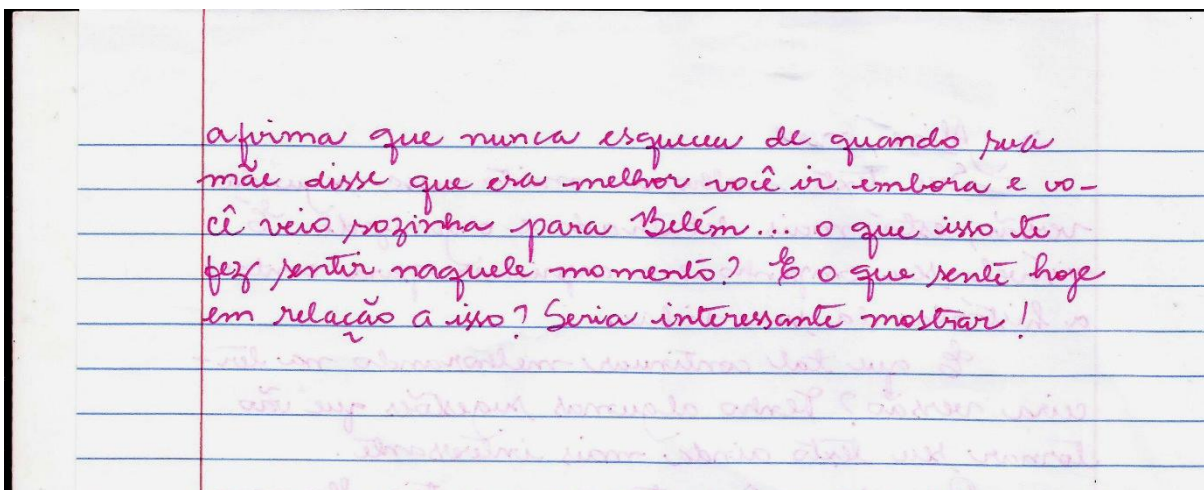 afirma que nunca esqueceu de quando sua
mãe disse que era melhor você ir embora e vo-
cê veio sozinha para Belém... o que isso te
fez sentir naquele momento? E o que sente hoje
em relação a isso? Seria interessante mostrar!